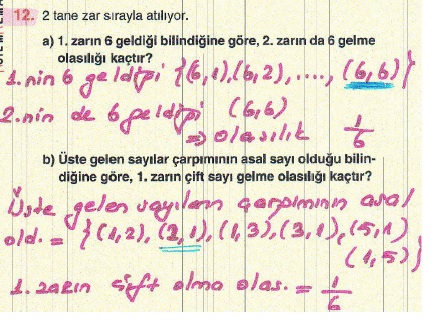 12. 2 tane zar sırayla atılıyor.
a) 1. zarın 6 geldiği bilindiğine göre, 2. zarın da 6 gelme
olasılığı kaçtır?
1.nin 6 geldiği {(6,1),(6,2), ...., (6,6)}
2.nin de 6 geldiği (6,6)
⇒ olasılık 1/6
b) Üste gelen sayılar çarpımının asal sayı olduğu bilin-
diğine göre, 1. zarın çift sayı gelme olasılığı kaçtır?
Üste gelen sayıların çarpımının asal
old. = {(1,2), (2,1), (1,3), (3,1), (5,1)
(1,5)}
1. zarın çift olma olas. = 1/6